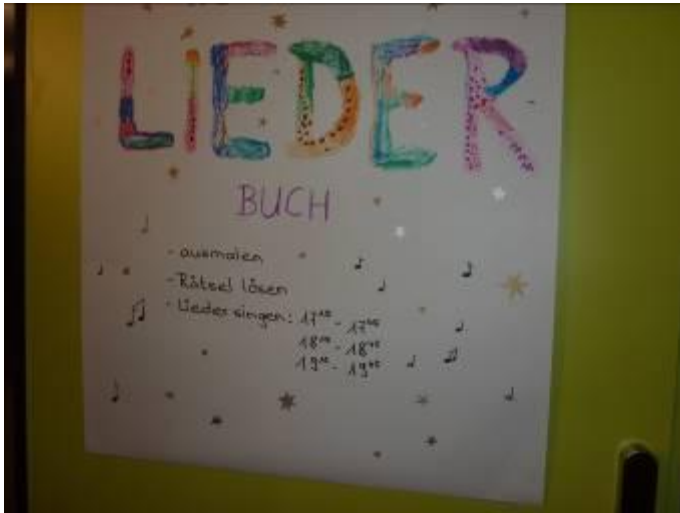 LIEDER
BUCH
- ausmalen
- Rätsel lösen
- Lieder singen: 17 - 17
18 - 18
19 - 19